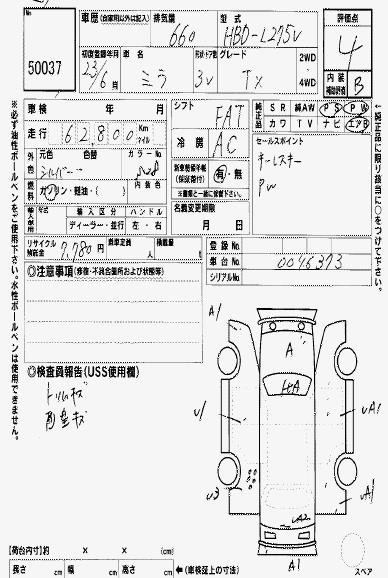 50037
車歴 (自家用以外は記入)
排気量 660
型式 HBD-L275V
評価点 4
初度登録年月 23/6月
車名 ミラ
形状・ドア数 3V
グレード TX
2WD
4WD
内装補助評価 B
車検 年 月
走行 62,800 Km マイル
シフト FAT
冷房 AC
純正品 SR 純AW PS PW
カワ TV ナビ エアB
外色 元色 シルバー 色替 カラーNo. S28
燃料 ガソリン・軽油・( ) 内装色
輸入区分 ハンドル
ディーラー・並行 左・右
新車整備手帳 (保証書付) 有・無
名義変更期限 月 日
セールスポイント
キーレスキー
PW
リサイクル預託金 7,780円
乗車定員 人
積載量
登録No.
車台No. 0046373
シリアルNo.
◎注意事項 (修復・不具合箇所および状態等)
◎検査員報告 (USS使用欄)
トリムキズ
内張キズ
※必ず油性ボールペンをご使用下さい。水性ボールペンは使用できません。
←純正品に限り該当に○をつけて下さい。
A1
A
HA
U1
UA1
U3
UA1
UA2
A1
スペア
【荷台内寸】約 × × (cm)
長さ cm 幅 cm 高さ cm ←(車検証上の寸法)